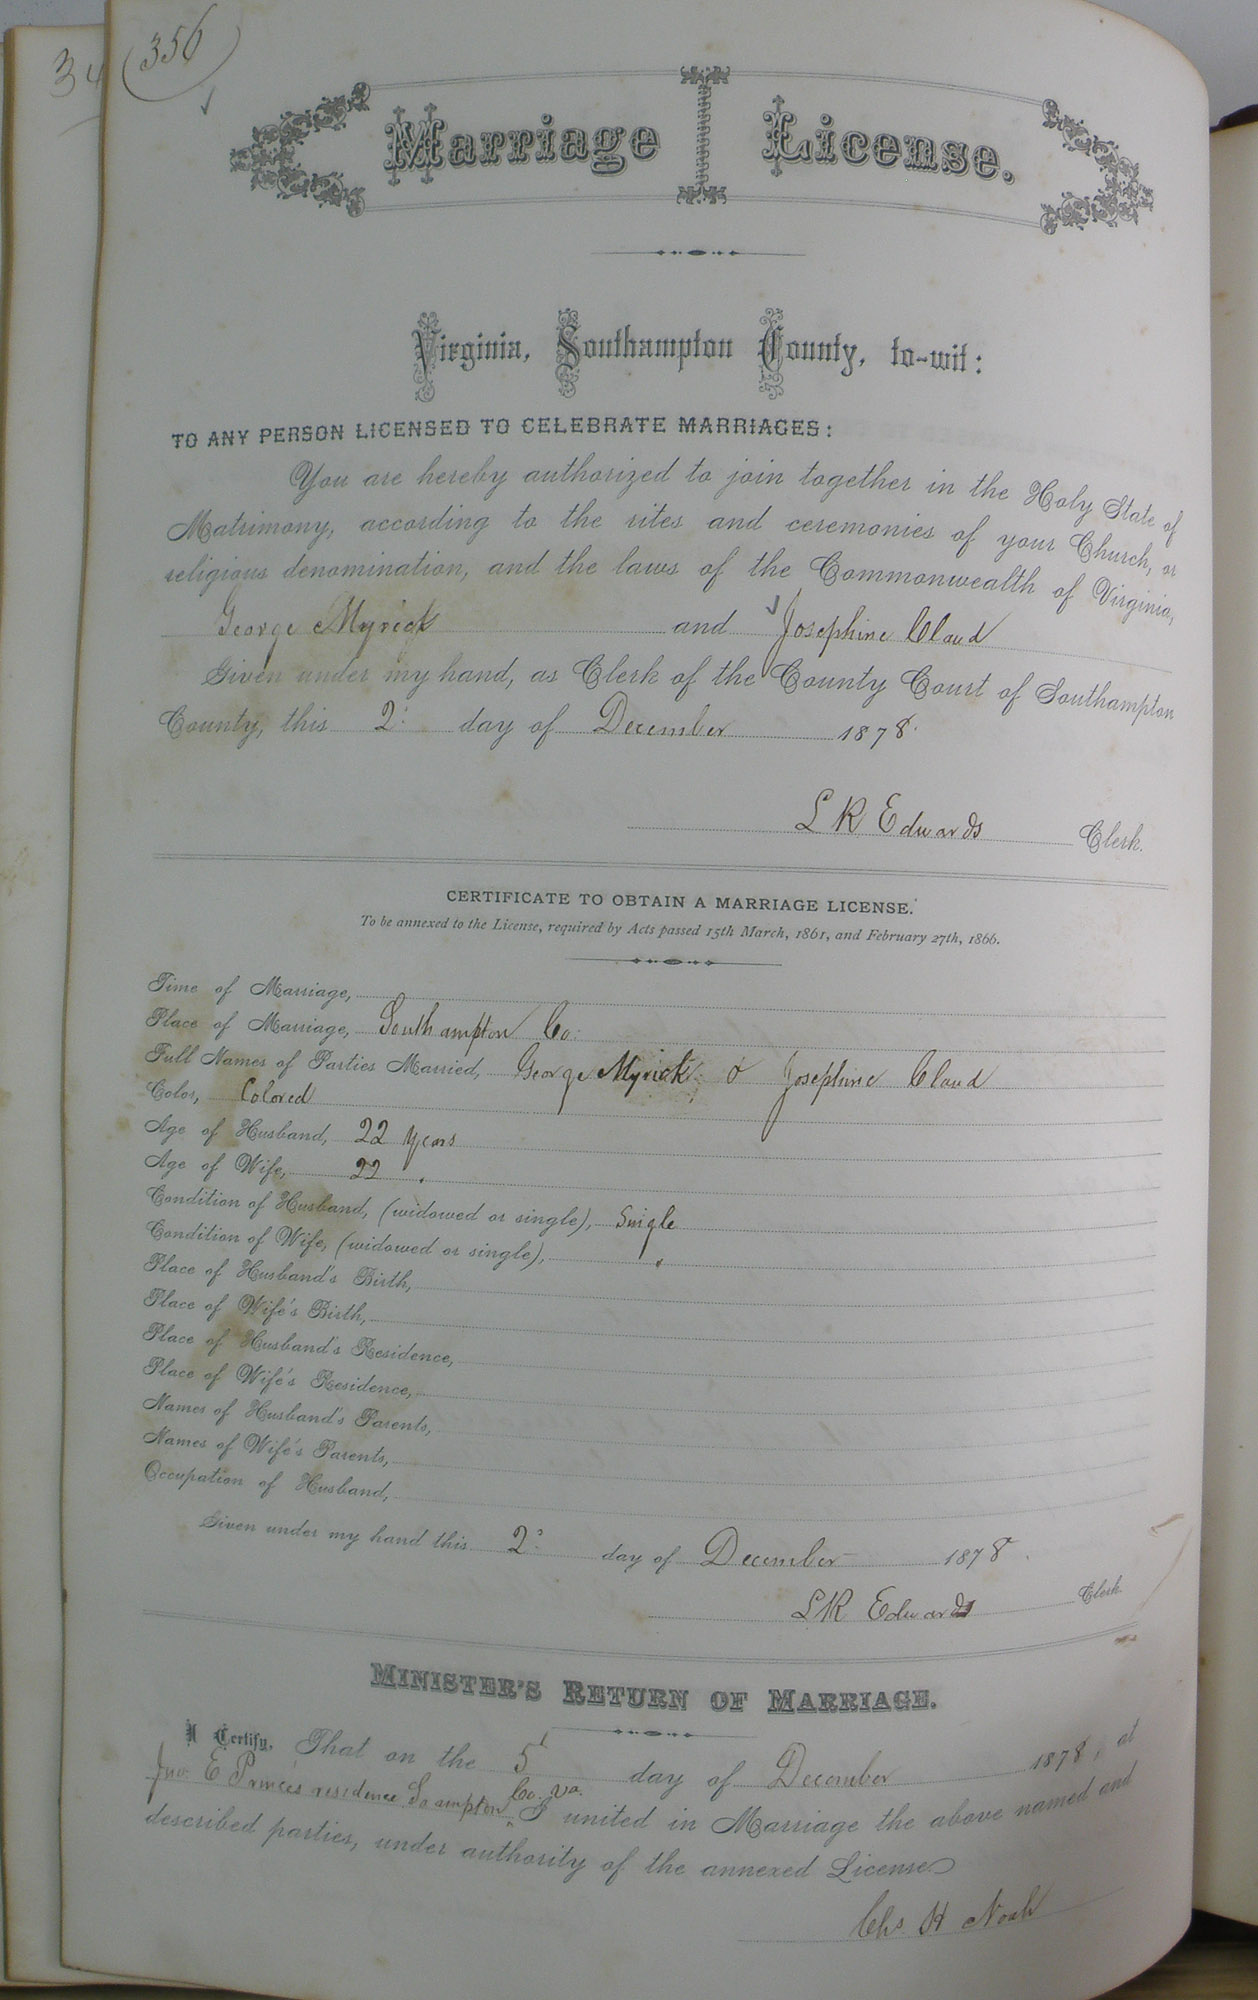 34
(356)
Marriage License.
Virginia, Southampton County, to-wit:
TO ANY PERSON LICENSED TO CELEBRATE MARRIAGES:
You are hereby authorized to join together in the Holy State of
Matrimony, according to the rites and ceremonies of your Church, or
religious denomination, and the laws of the Commonwealth of Virginia,
George Myrick and Josephine Claud
Given under my hand, as Clerk of the County Court of Southampton
County, this 2: day of December 1878.
L R Edwards Clerk.
CERTIFICATE TO OBTAIN A MARRIAGE LICENSE.
To be annexed to the License, required by Acts passed 15th March, 1861, and February 27th, 1866.
Time of Marriage,
Place of Marriage, Southampton Co:
Full Names of Parties Married, George Myrick & Josephine Claud
Color, Colored
Age of Husband, 22 years
Age of Wife, 22 "
Condition of Husband, (widowed or single), Single
Condition of Wife, (widowed or single), "
Place of Husband's Birth,
Place of Wife's Birth,
Place of Husband's Residence,
Place of Wife's Residence,
Names of Husband's Parents,
Names of Wife's Parents,
Occupation of Husband,
Given under my hand this 2: day of December 1878.
L R Edwards Clerk.
MINISTER'S RETURN OF MARRIAGE.
I Certify, That on the 5 day of December 1878, at
Jno. E Princes residence So ampton Co. Va. I united in Marriage the above named and
described parties, under authority of the annexed License
Chs. H